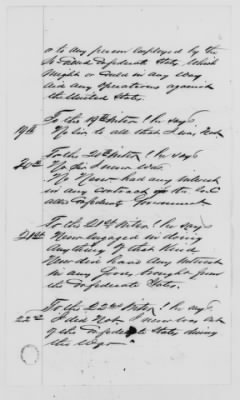 or to any person employed by the
So Called Confederate States, Which
Might or Could in any Way
Aid any Operations against
the United States.
To the 19th Inter! he says
19th No Sir to all that I did Not.
To the 20th Inter! he says
20th No Sir I never Was.
No Never had any Interest
in any Contract of the So
Called Confederate Government
To the 21st Inter! he says
21st Never engaged in doing
Anything of that Kind
Never did have Any Interest
in any Goods brought from
the Confederate States.
To the 22nd Inter! he says
22nd I did Not. I never was out
of the Confederate States during
the War.